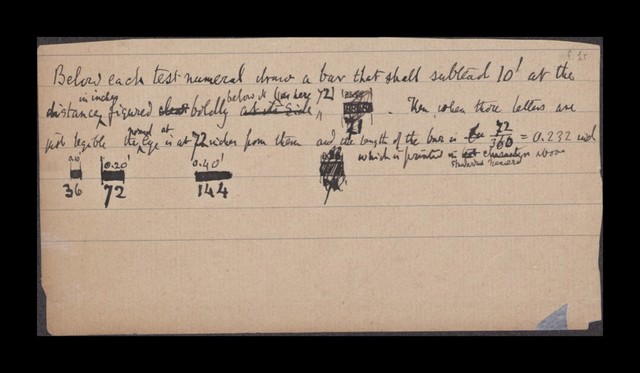 Below each test numeral draw a bar that shall subtend 10' at the
in inches below it (as here 72)
distance, figured boldly at its side . Then, when those letters are
just legible the eye is at 72 inches from them and the length of the bar is 72/360 = 0.232 inch
which is printed in characters above
0.20' 0.40'
36 72 144